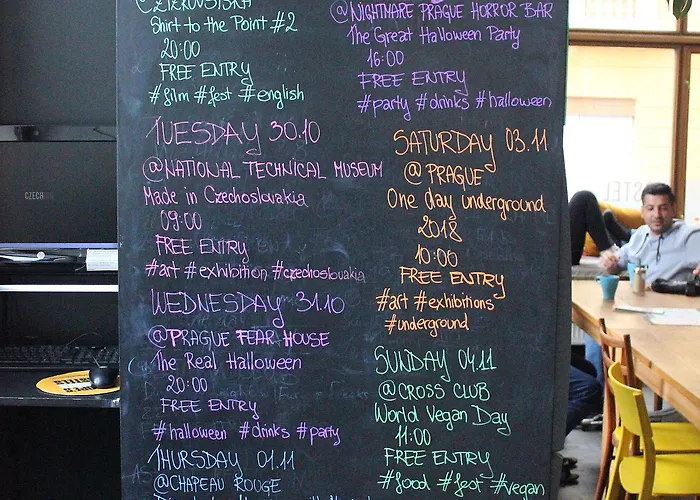 @ŽIŽKOVŠIŠKA
Shirt to the Point #2
20:00
FREE ENTRY
#film #fest #english
TUESDAY 30.10
@NATIONAL TECHNICAL MUSEUM
Made in Czechoslovakia
09:00
FREE ENTRY
#art #exhibition #czechoslovakia
WEDNESDAY 31.10
@PRAGUE FEAR HOUSE
The Real Halloween
20:00
FREE ENTRY
#halloween #drinks #party
THURSDAY 01.11
@CHAPEAU ROUGE
@NIGHTMARE PRAGUE HORROR BAR
The Great Halloween Party
16:00
FREE ENTRY
#party #drinks #halloween
SATURDAY 03.11
@PRAGUE
One day underground
2018
10:00
FREE ENTRY
#art #exhibitions
#underground
SUNDAY 04.11
@CROSS CLUB
World Vegan Day
11:00
FREE ENTRY
#food #fest #vegan
CZECH